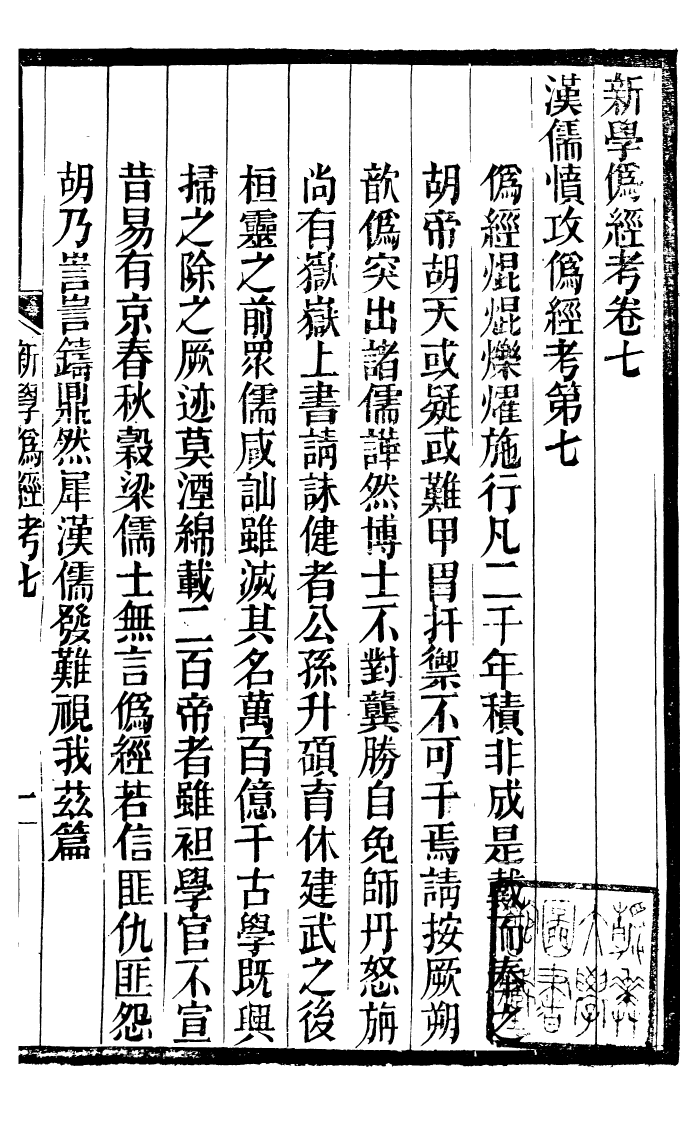 新學僞經考卷七
漢儒憤攻僞經考第七
僞經焜焜爍燿施行凡二千年積非成是戴而奉之
胡帝胡天或疑或難甲胃扞禦不可干焉請按厥朔
歆僞突出諸儒譁然博士不對龔勝自免師丹怒旃
尚有嶽嶽上書請誅健者公孫升碩育休建武之後
桓靈之前眾儒咸訕雖滅其名萬百億千古學既興
掃之除之厥迹莫湮綿載二百帝者雖袒學官不宣
昔易有京春秋穀梁儒士無言僞經若信匪仇匪怨
胡乃訔訔鑄鼎然犀漢儒發難視我茲篇
新學僞經考七
一
燕京大學圖書